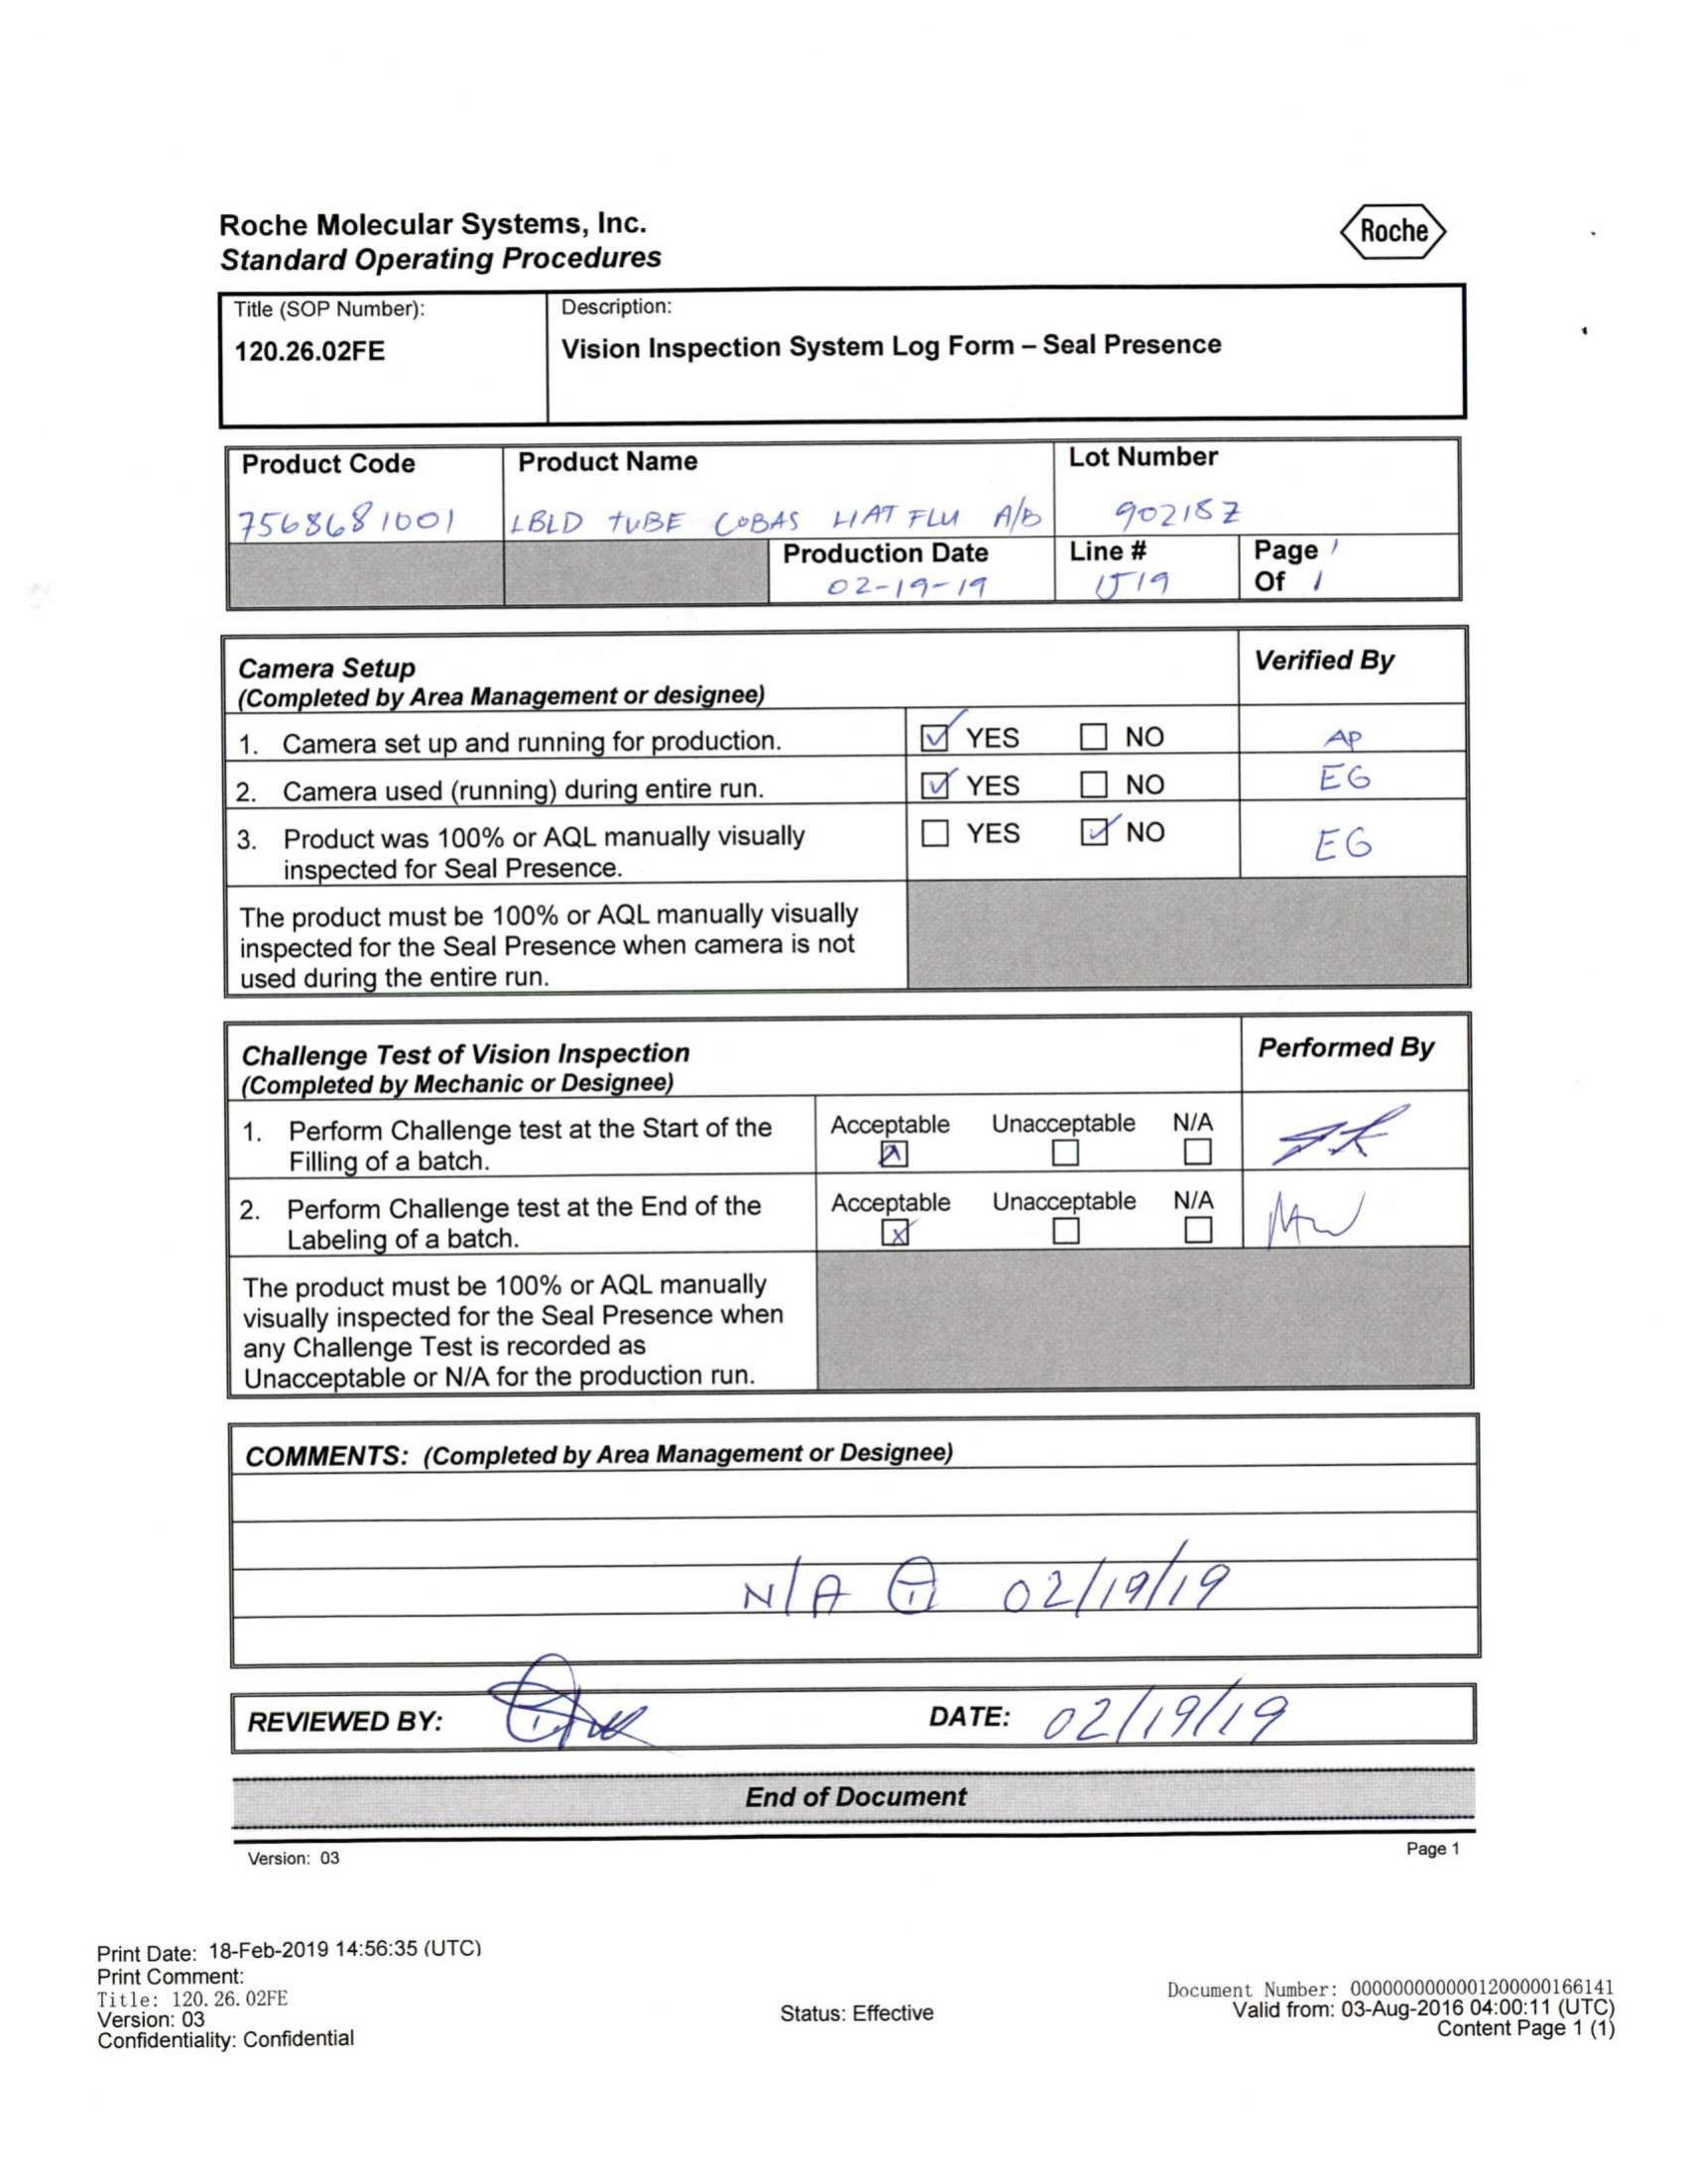 Roche Molecular Systems, Inc.
Standard Operating Procedures
Roche
Title (SOP Number):
120.26.02FE
Description:
Vision Inspection System Log Form – Seal Presence
Product Code
7568681001
Product Name
LBLD TUBE COBAS LIAT FLU A/B
Lot Number
90218Z
Production Date
02-19-19
Line #
Page 1
Of 1
Camera Setup
(Completed by Area Management or designee)
Verified By
1. Camera set up and running for production. YES NO AP
2. Camera used (running) during entire run. YES NO EG
3. Product was 100% or AQL manually visually YES NO EG
inspected for Seal Presence.
The product must be 100% or AQL manually visually
inspected for the Seal Presence when camera is not
used during the entire run.
Challenge Test of Vision Inspection
(Completed by Mechanic or Designee)
Performed By
1. Perform Challenge test at the Start of the
Filling of a batch.
Acceptable Unacceptable N/A
2. Perform Challenge test at the End of the
Labeling of a batch.
Acceptable Unacceptable N/A
MW
The product must be 100% or AQL manually
visually inspected for the Seal Presence when
any Challenge Test is recorded as
Unacceptable or N/A for the production run.
COMMENTS: (Completed by Area Management or Designee)
N/A 02/19/19
REVIEWED BY: DATE: 02/19/19
End of Document
Version: 03
Page 1
Print Date: 18-Feb-2019 14:56:35 (UTC)
Print Comment:
Title: 120.26.02FE
Version: 03
Confidentiality: Confidential
Status: Effective
Document Number: 0000000000001200000166141
Valid from: 03-Aug-2016 04:00:11 (UTC)
Content Page 1 (1)